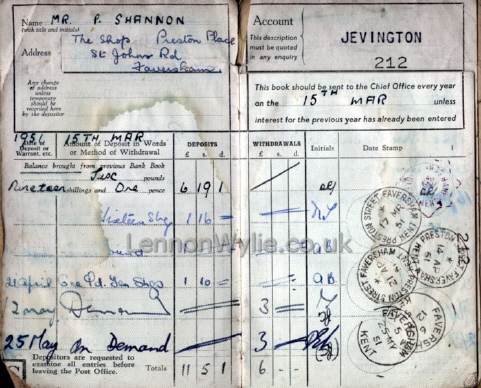 Name MR. P. SHANNON
(with title and initials)
Address The Shop, Preston Place
St Johns Rd
Faversham.
Any change of address unless temporary should be recorded here by the depositor
Account
This description must be quoted in any enquiry
JEVINGTON
212
This book should be sent to the Chief Office every year
on the 15TH MAR unless
interest for the previous year has already been entered
1951 15TH MAR
Date of Deposit or Warrant, etc.
Amount of Deposit in Words or Method of Withdrawal
DEPOSITS
£ s. d.
WITHDRAWALS
£ s. d.
Initials
Date Stamp
Balance brought from previous Bank Book
Six pounds
Nineteen shillings and One pence 6 19 1
Sixteen Shgs 1 16 —
AB
April One Pd. Ten Shgs 1 10 — AB
12 May Demand 3 —
25 May On Demand 3 —
Depositors are requested to examine all entries before leaving the Post Office.
Totals 11 5 1 6 - -
212
PRESTON STREET, FAVERSHAM
PRESTON
FAVERSHAM
KENT
LennonWylie.co.uk